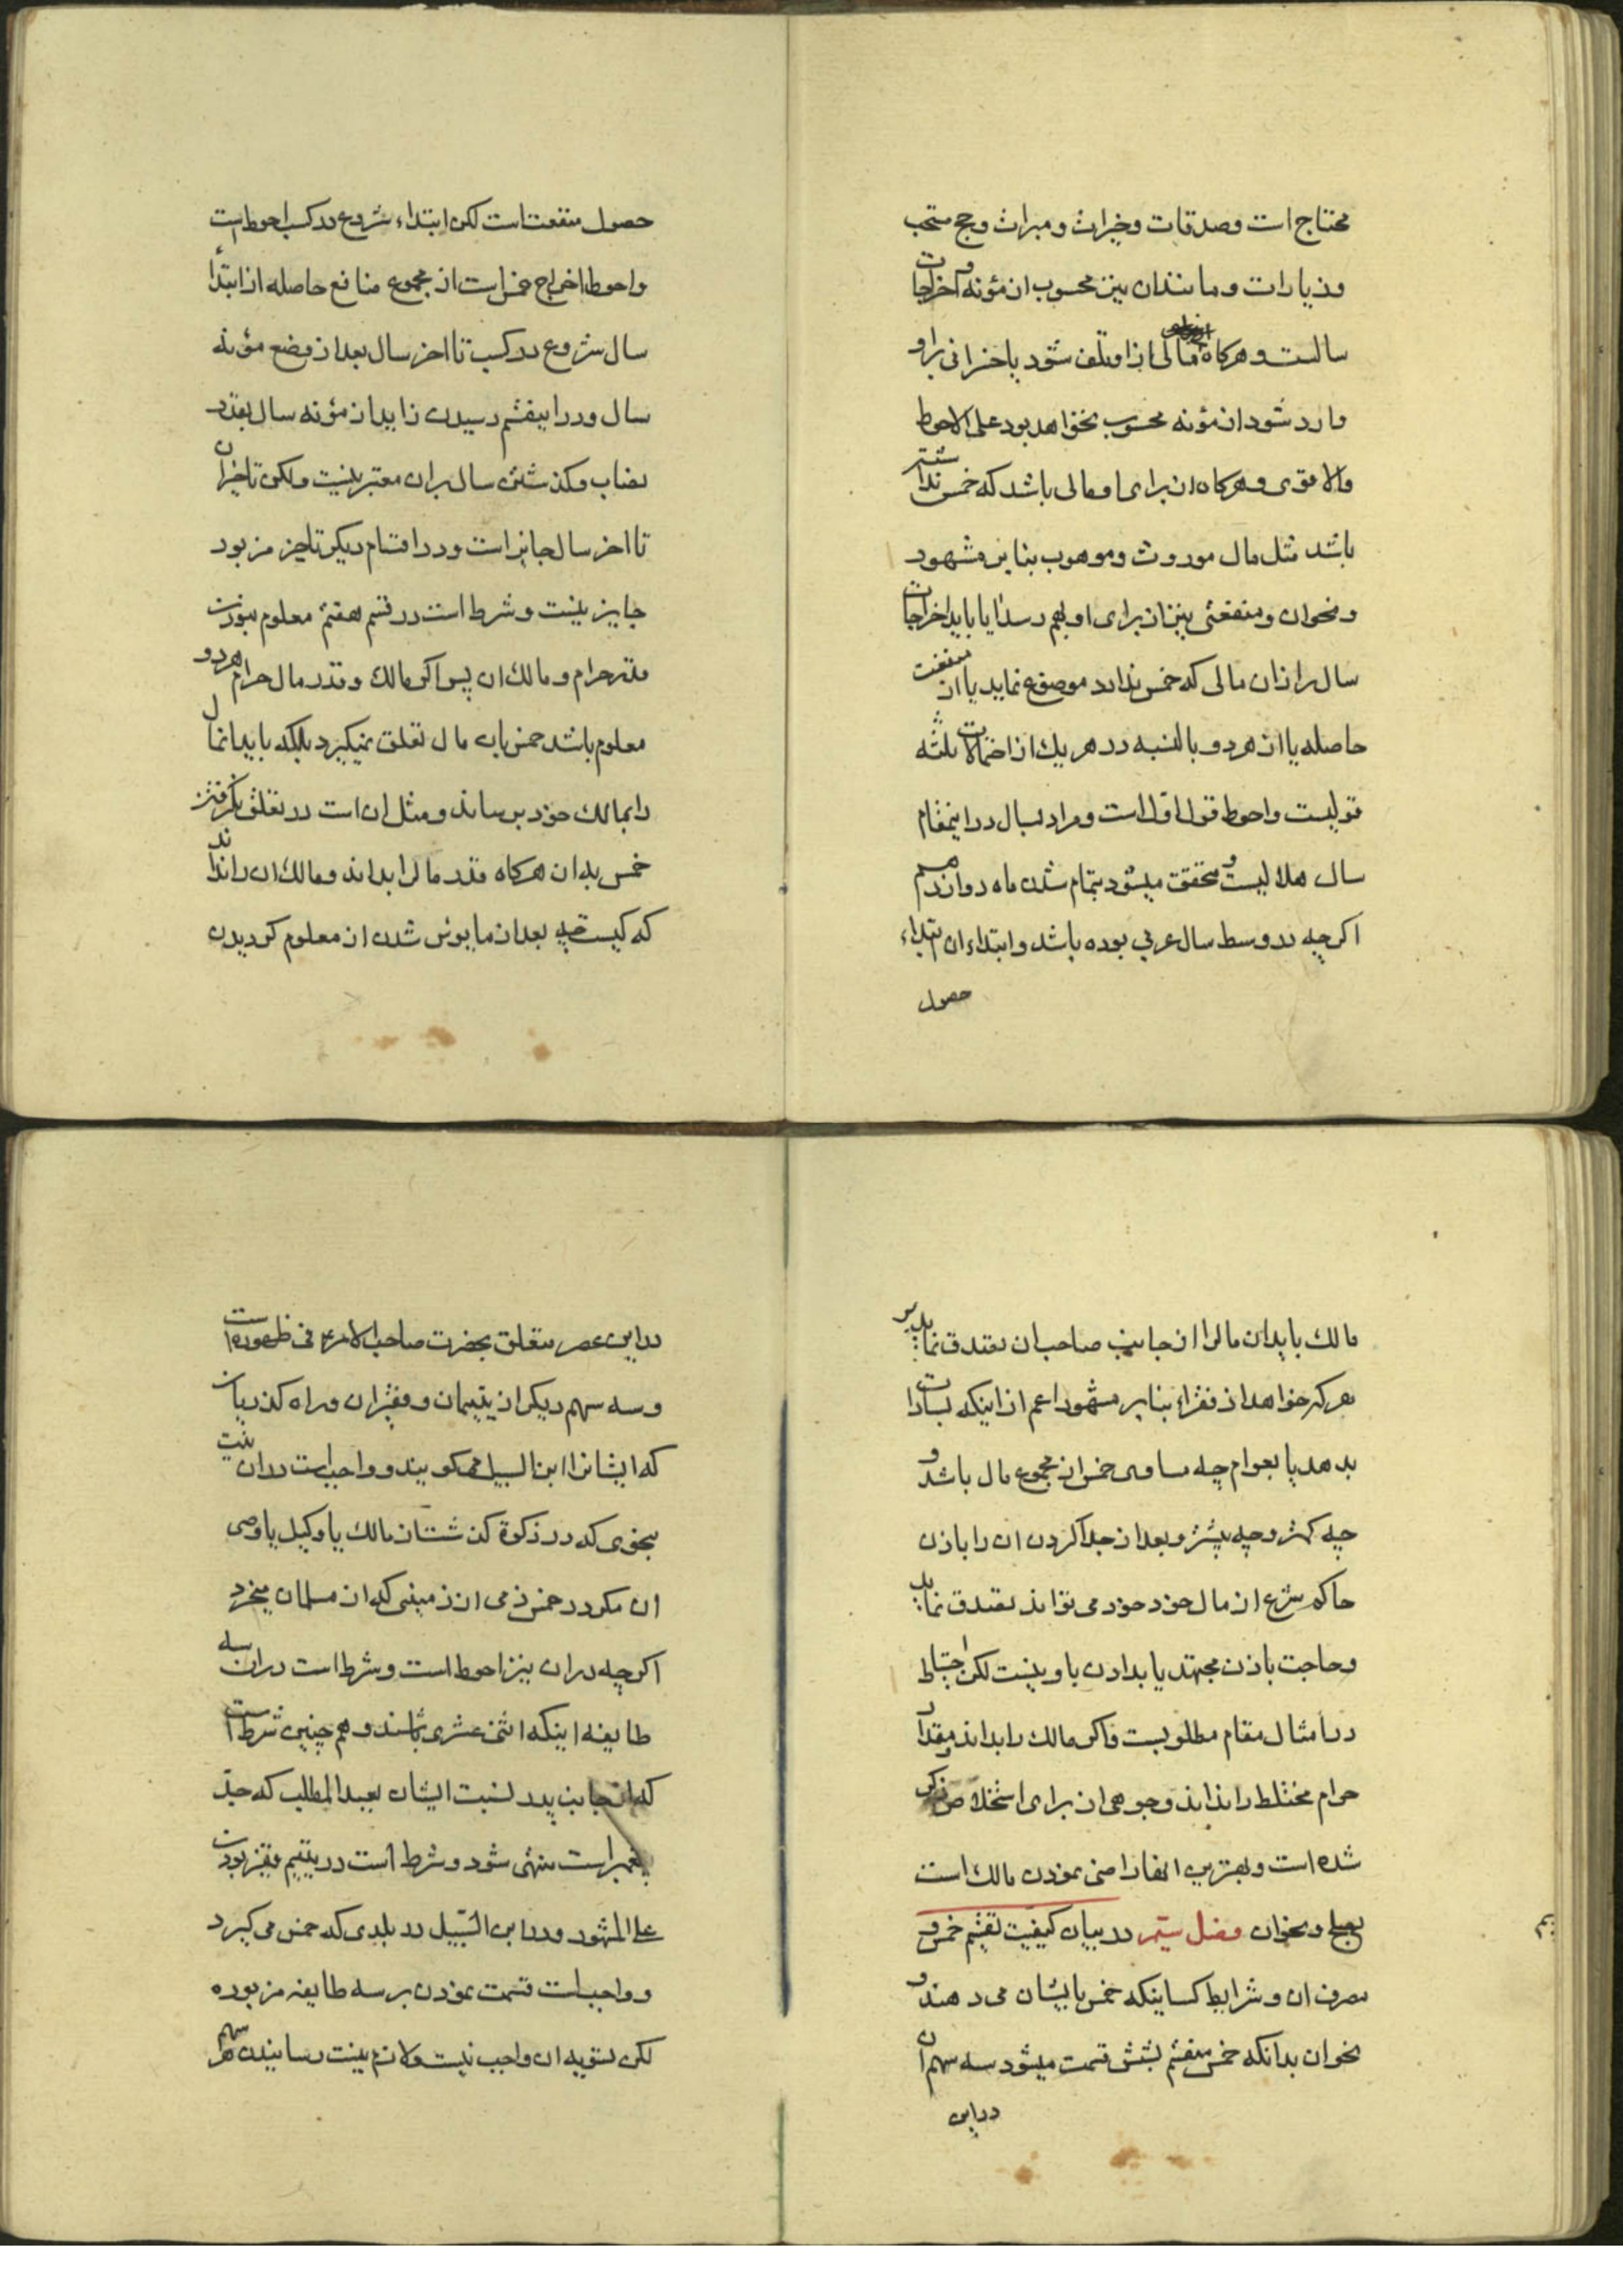 محتاج است وصدقات وخیرات ومبرات وحج مستحب
وزیارات ومانندان نیز محسوب از مؤنه و اخراجات
سالست و هرکاه مالی از او تلف شود یا خسرانی براو
وارد شود از مؤنه محسوب نخواهد بود علی الاحوط
والاقوی و هرکاه از برای او مالی باشد که خمس نداشته
باشد مثل مال موروث وموهوب بنابر مشهور
ونحوان و منفعتی نیز از برای او بهم رسد ایا باید اخراجات
سال را ازان مالی که خمس ندارد موضوع نماید یا از منفعت
حاصله یا از هر دو بالنسبه در هر یک از احتمالات ثلثه
قولیست واحوط قول اول است ومراد بسال دراینمقام
سال هلالیست و محقق میشود بتمام شدن ماه دوازدهم
اکرچه در وسط سال عربی بوده باشد وابتداء ان ابتداء
حصول
حصول منفعت است لکن ابتداء شروع در کسب احوط است
واحوط اخراج خمس است از مجموع منافع حاصله از ابتدأ
سال شروع در کسب تا اخر سال بعد از وضع مؤنه
سال ودر اینقسم رسیدن زاید از مؤنه سال بقدر
نصاب وکذشتن سال بران معتبر نیست ولکن تاخیران
تا اخر سال جایز است ودر اقسام دیکر تاخیر مزبور
جایز نیست وشرط است در قسم هفتم معلوم نبودن
قدر حرام و مالک ان پس اکر مالک وقدر مال حرام هر دو
معلوم باشد خمس بان مال تعلق نمیکیرد بلکه باید انمال
را بمالک خود برساند ومثل ان است در تعلق نکرفتن
خمس بدان هرکاه قدر مال را بداند ومالک ان را نداند
که کیست چه بعد از مایوس شدن از معلوم کردیدن
مالک باید ان مال را از جانب صاحب ان تصدق نماید بر
هر که خواهد از فقراء بنابر مشهور اعم از اینکه بسادات
بدهد یا بعوام چه مساوی خمس از مجموع مال باشد و
چه کمتر وچه بیشتر وبعد از جدا کردن ان را باذن
حاکم شرع از مال خود خود می تواند تصدق نماید
وحاجت باذن مجتهد یا بدادن باو نیست لکن احتیاط
در امثال مقام مطلوبست واکر مالک را بداند ومقدار
حرام مختلط را نداند وجوهی از برای استخلاص ذکر
شده است وبهترین انها راضی نمودن مالک است
بصلح ونحوان فصل سیّم در بیان کیفیت تقسیم خمس و
مصرف ان وشرایط کسانیکه خمس بایشان می دهند و
نحوان بدانکه خمس منقسم بشش قسمت میشود سه سهم ان
دراین
دراین عصر متعلق بحضرت صاحب الامر فی ظهوره است
وسه سهم دیکر از یتیمان و فقیران وراه کذریان
که ایشانرا ابن السبیل میکویند و واجب است دران نیت
بنحوی که در زکوة کذشت از مالک یا وکیل یا وصی
ان مکر در خمس ذمی از زمینی که از مسلمان میخرد
اکرچه دران نیز احوط است وشرط است دران سه
طایفه اینکه اثنی عشری باشند وهم چنین شرط است
که از جانب پدر نسبت ایشان بعبدالمطلب که جدّ
پیغمبر است منتهی شود وشرط است در یتیم فقیر بودن
علی المشهور ودر ابن السّبیل در بلدی که خمس می کیرد
و واجب است قسمت نمودن بر سه طایفه مزبوره
لکن تسویه ان واجب نیست ولازم نیست رسانیدن هر سهم